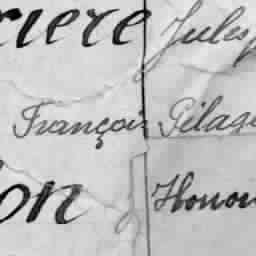 riere Jules
François Pélage
on Honor